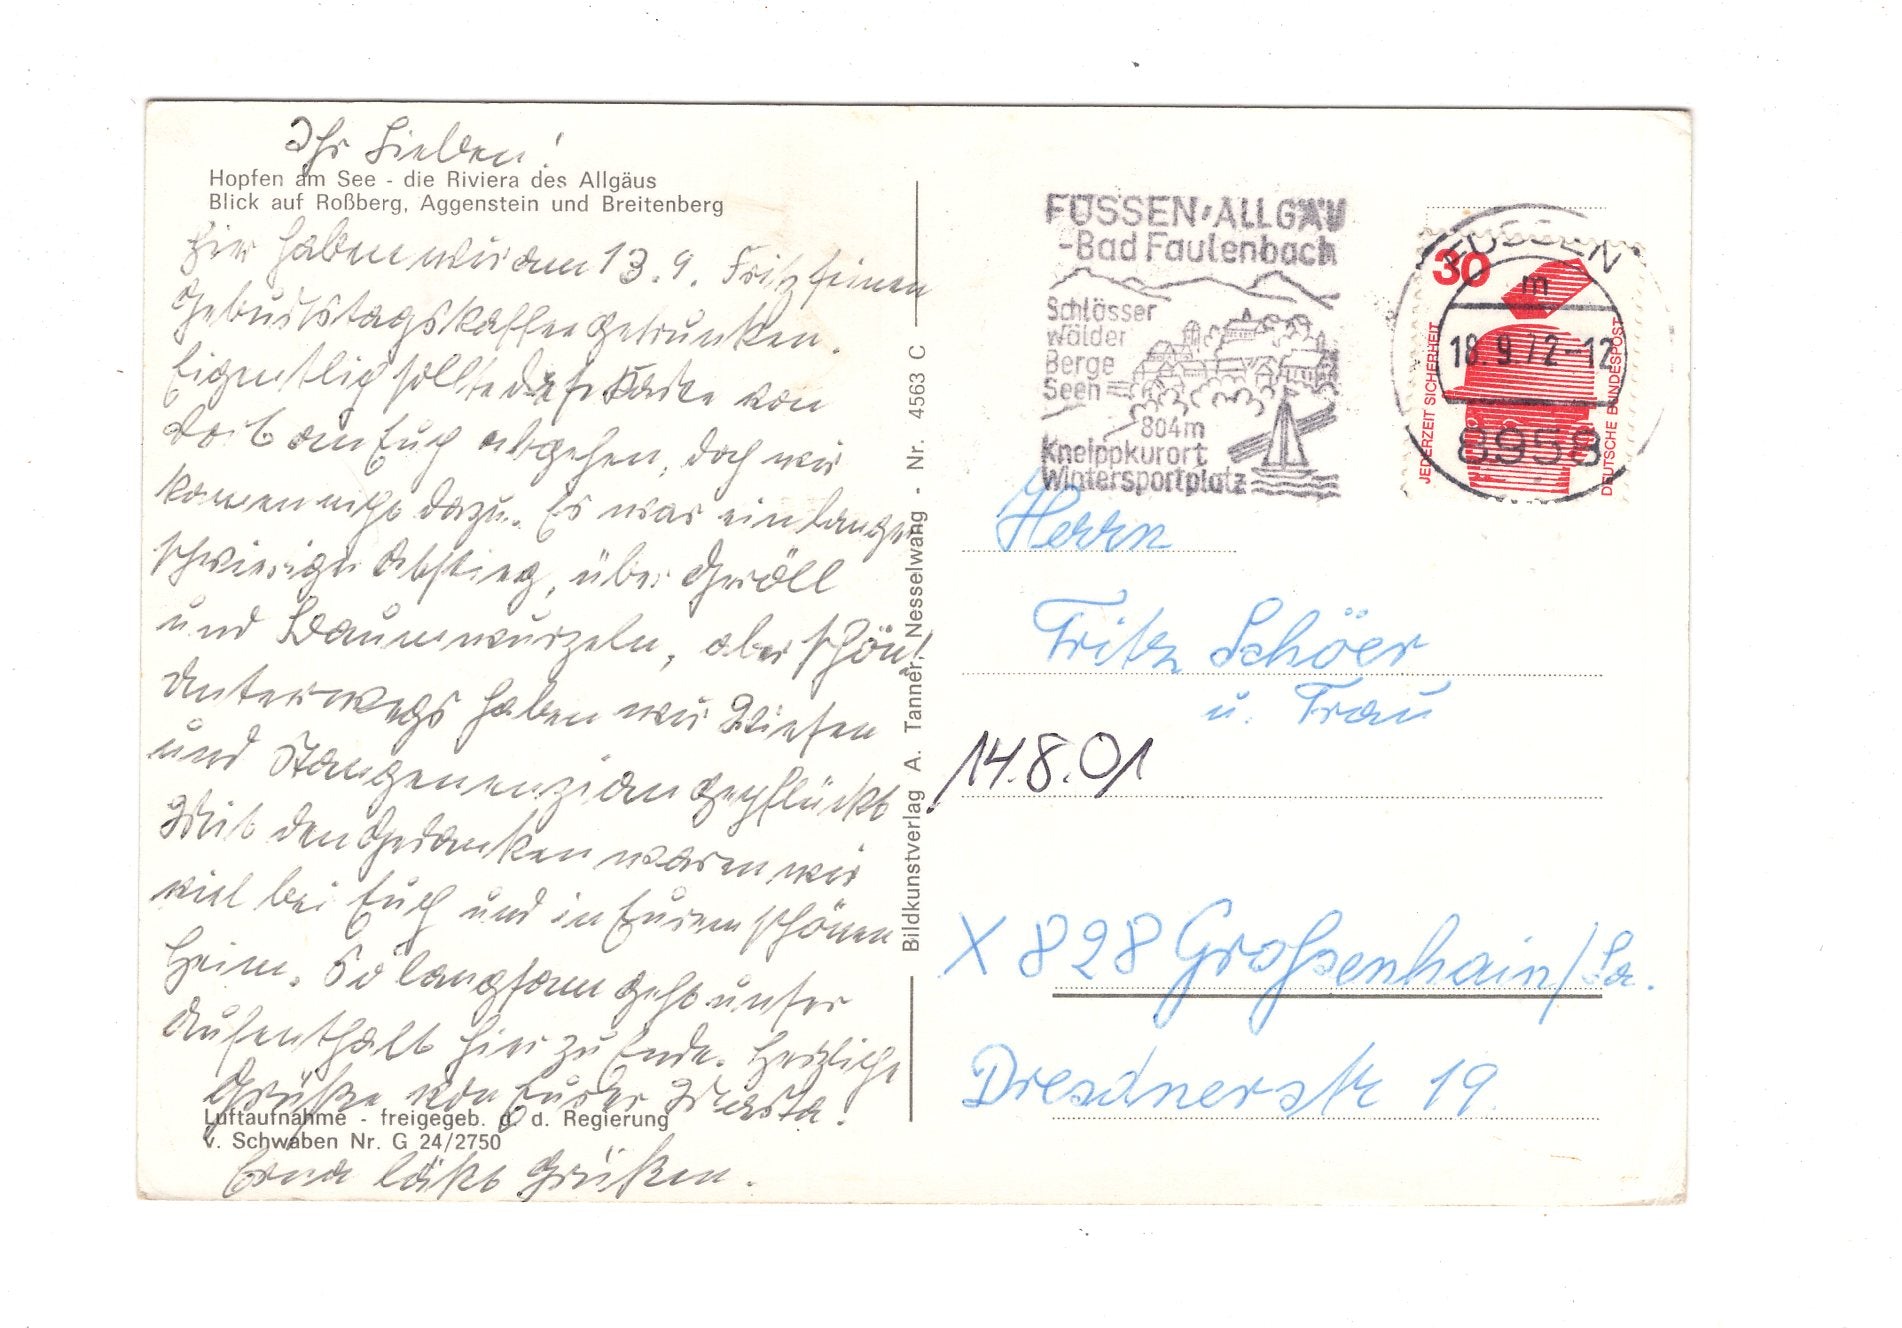 Ihr Lieben!
Hopfen am See - die Riviera des Allgäus
Blick auf Roßberg, Aggenstein und Breitenberg
Hier haben wir am 13.9. Fritz seinen
Geburtstagskaffee getrunken.
Eigentlich sollte diese Karte von
dort an Euch abgehen, doch wir
kamen nicht dazu. Es war ein langer
schwieriger Abstieg, über Geröll
und Baumwurzeln, aber schön!
Unterwegs haben wir
und Stangenenzian gepflückt
Mit den Gedanken waren wir
viel bei Euch und in Eurem schönen
Heim. So langsam geht unser
Aufenthalt hier zu Ende. Herzliche
Grüße von Eurer Marta.
Luftaufnahme - freigegeb. d. d. Regierung
v. Schwaben Nr. G 24/2750
Erna läßt Grüßen.
Bildkunstverlag A. Tanner, Nesselwang · Nr. 4563 C
FÜSSEN·ALLGÄU
-Bad Faulenbach
Schlösser
Wälder
Berge
Seen
804m
Kneippkurort
Wintersportplatz
FÜSSEN
m
18.9.72-12
8958
30
JEDERZEIT SICHERHEIT
DEUTSCHE BUNDESPOST
Herrn
Fritz Schöer
u. Frau
14.8.01
X 828 Großenhain/Sa.
Dresdnerstr 19.